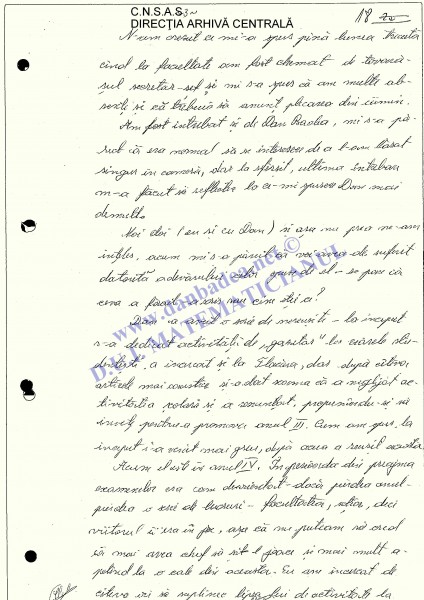 C.N.S.A.S.
DIRECŢIA ARHIVĂ CENTRALĂ
18
N-am crezut ce mi-a spus pînă lunea trecută
cînd la facultate am fost chemat de tovară-
șul secretar-șef și mi s-a spus că am multe ab-
sențe și că trebuia să anunț plecarea din cămin.
Am fost întrebat și de Dan Badea, mi s-a pă-
rut că era normal să se intereseze de a l-am lăsat
singur în cameră, dar la sfîrșit, ultima întrebare
m-a făcut să reflectez la ce-mi spusese Dan mai
demult.
Noi doi (eu și cu Dan) și așa nu prea ne-am
înțeles, acum mi s-a părut că voi avea de suferit
datorită adevărului celor spuse de el - se pare că
ceva a făcut, a scris sau cine știe ce?
Dan a avut o serie de nereușite - la început
s-a dedicat activității de "gazetar" la ziarele stu-
dențești, a încercat și la Flacăra, dar după cîteva
articole mai caustice și-a dat seama că a neglijat ac-
tivitatea școlară și a renunțat, propunîndu-și să
învețe pentru a promova anul III. Cum am spus, la
început i-a venit mai greu, după aceea a reușit aceasta.
Acum el e în anul IV. În perioada din preajma
examenelor era cam dezorientat - dacă pierdea anul -
pierdea o serie de lucruri - facultatea, soția, deci
viitorul îi era în joc, așa că nu puteam să cred
să mai avea chef să
o cale din aceasta. Eu am încercat de
cîteva ori să suplinesc lipsa lui de activitate la
www.danbadea.net ©
D.U.I. MATEMATICIANUL